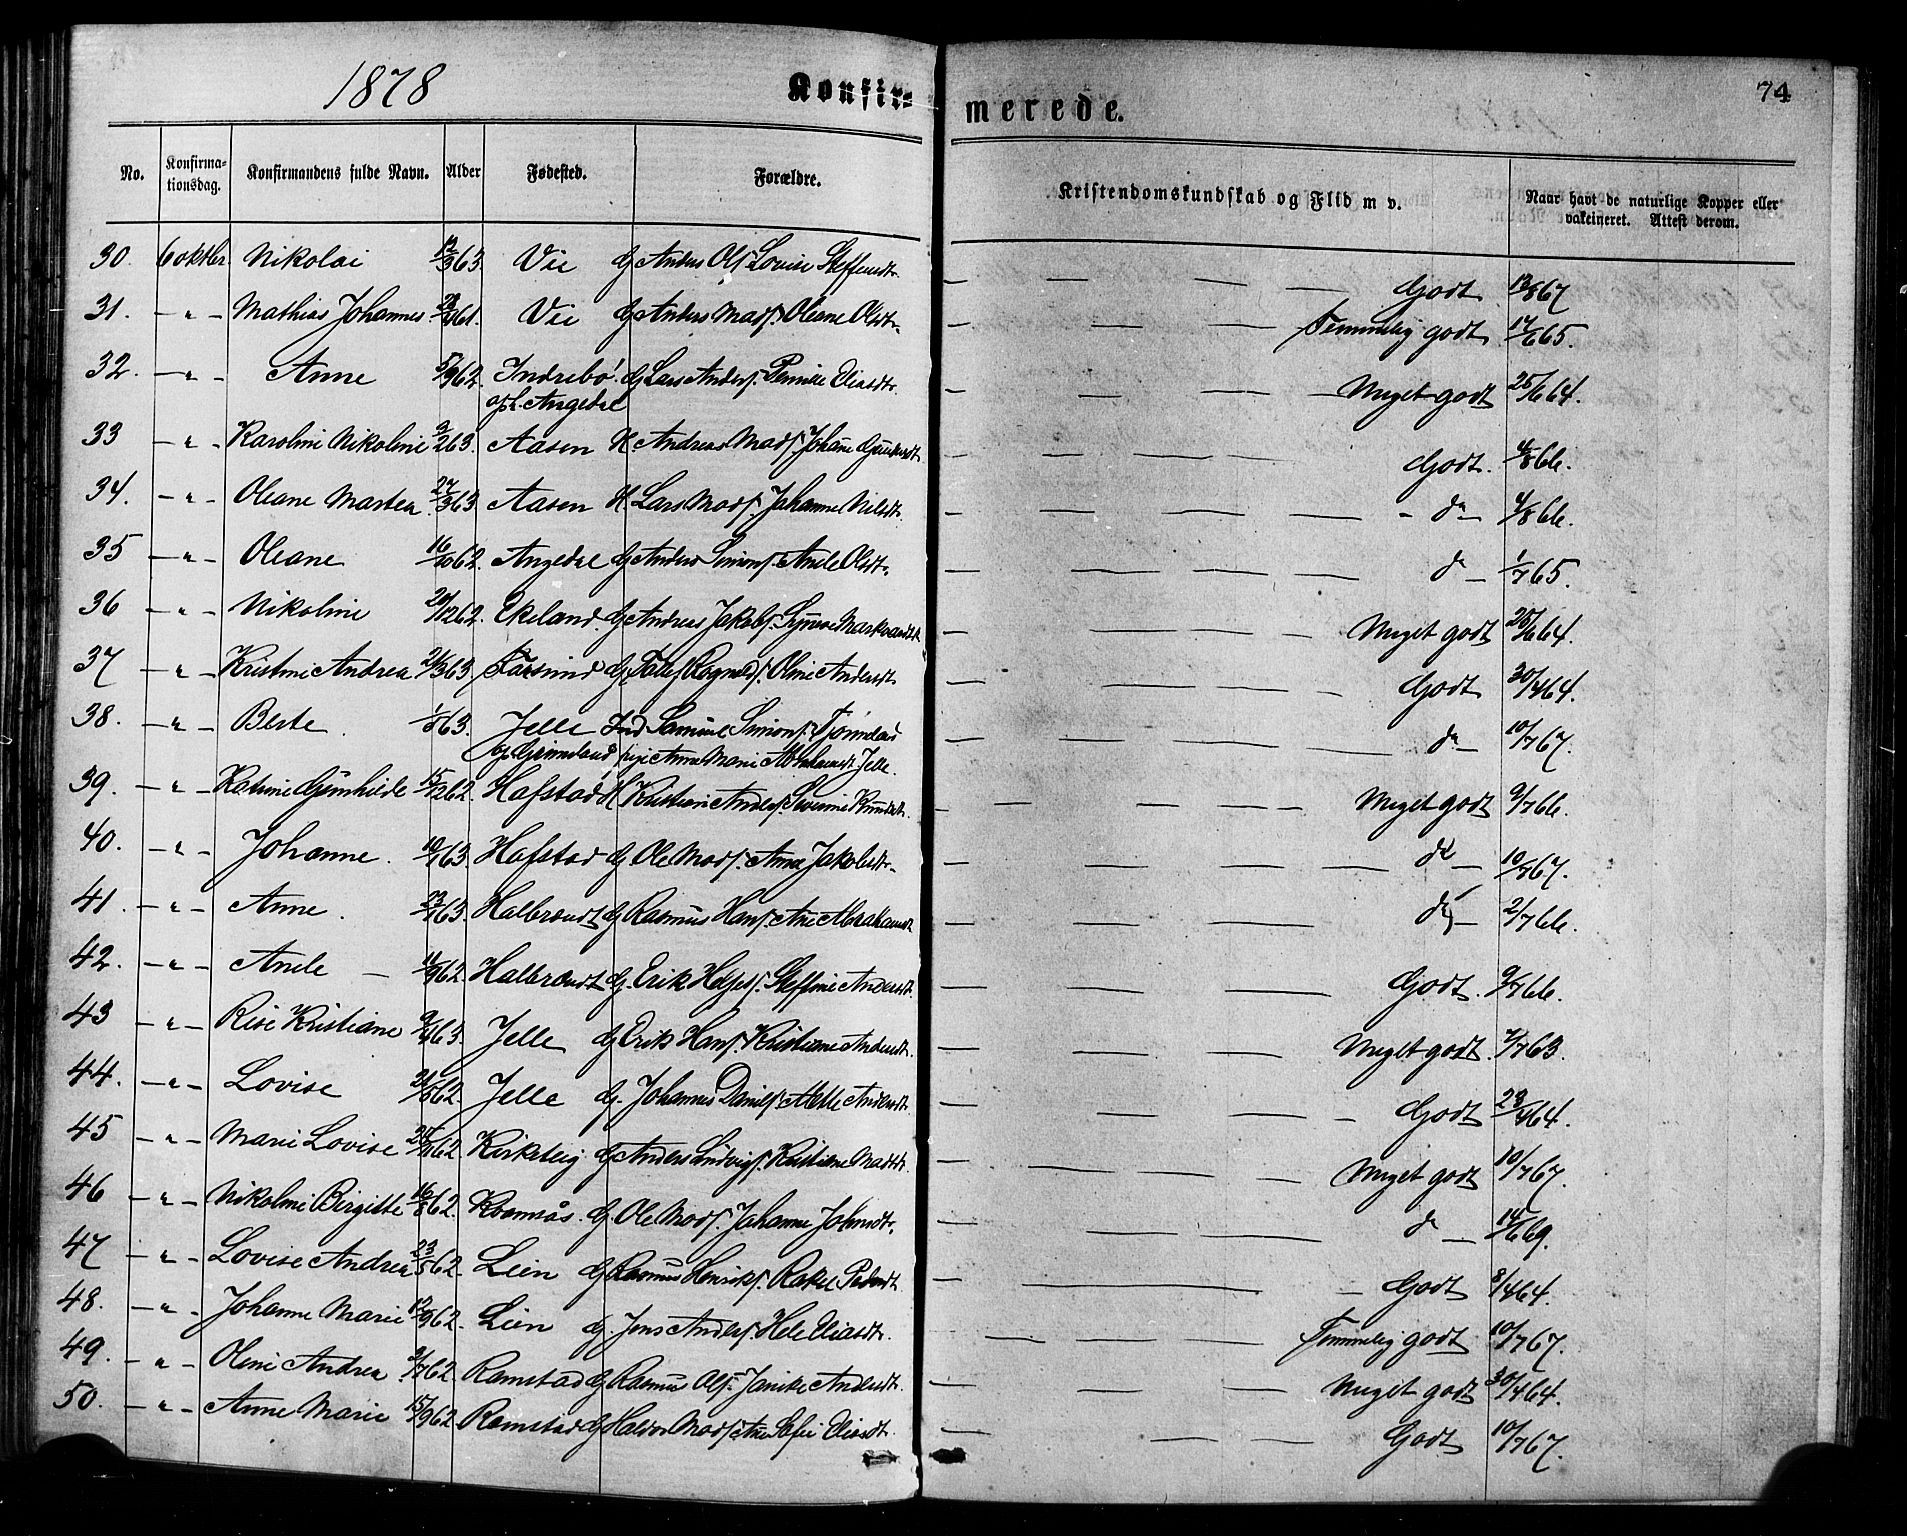 1878
Konfir-
merede.
74
No.
Konfirma-
tionsdag.
Konfirmandens fulde Navn.
Alder
Fødested.
Forældre.
Kristendomskundskab og Flid m v.
Naar havt de naturlige Kopper eller
vakcineret. Attest derom.
30. 6 oktbr. Nikolai 12/3 63. Vie G Anders Ols. Lovise Steffensdtr. Godt 12/8 67
31. — " — Mathias Johannes 61. Vie G Anders Mads. Oleane Olsdtr. Temmelig godt 17/6 65.
32. — " — Anne 5/9 62. Indrebø G Lars Anders. Eliasdtr. Meget godt 25/6 64.
opf. Angedal
33 — " — Karoline Nikoline 9/2 63. Aasen H. Andreas Mads. Johanne Godt. 4/8 66.
34. — " — Oleane Martea 27/3 63 Aasen H Lars Mads. Johanne Nilsdtr. — do — 4/8 66.
35 — " — Oleane 16/10 62. Angedal G Anders Simons. Anele Olsdtr. do — 1/7 65.
36 — " — Nikoline 20/12 62. Ekeland G Andreas Jakobs. Synneve Markvardtr Meget godt 25/6 64.
37 — " — Kristine Andrea 21/3 63 Farsund G. Ragnvalds. Oline Andersdt. Godt 30/4 64.
38. — " — Berte 63. Jelle Ind Samuel Simons.
og Grimeland pige Anne Marie Abrahamsdt Jelle. do — 10/7 67.
39. — " — Katrine Gunhilde 15/12 62. Hafstad H Kristian Anders. Severine Knudsdt. Meget godt 9/7 66.
40. — " — Johanne. 10/1 63. Hafstad G. Ole Mads. Anne Jakobsdtr. do — 10/8 67.
41. — " — Anne. 23/1 63. Halbrendt G Rasmus Hans. Ane Abrahamsdt do — 2/7 66.
42. — " — Anele — 11/9 62. Halbrendt G. Erik Helges. Steffine Andersdt. Godt. 9/7 66.
43 — " — Rise Kristiane 9/4 63. Jelle G Erik Hans. Kristiane Andersdt. Meget godt. 2/7 63.
44. — " — Lovise 62. Jelle G. Johannes Daniels. Mette Andersdt. — Godt 23/4 64.
45 — " — Marie Lovise 62. Kirketeig G Anders Ludvigs. Kristiane Madsdtr. Meget godt 10/7 67.
46 — " — Nikoline Birgitte 16/8 62. Kvamsås. G. Ole Mads. Johanne Johnsdtr. do — 14/6 69.
47 — " — Lovise Andrea 23/5 62. Lien G Rasmus Henriks. Rakel Pedersdt — Godt 8/4 64.
48. — " — Johanne Marie 12/9 62. Lien G. Jens Anders. Hele Eliasdtr. Temmelig godt 10/7 67.
49. — " — Oline Andrea 9/7 62. Ramstad G Rasmus Ols. Janike Andersdt. Meget godt 30/4 64.
50. — " — Anne Marie 15/9 62 Ramstad G Haldor Mads. Ane Sofie Eliasdt. Godt 10/7 67.